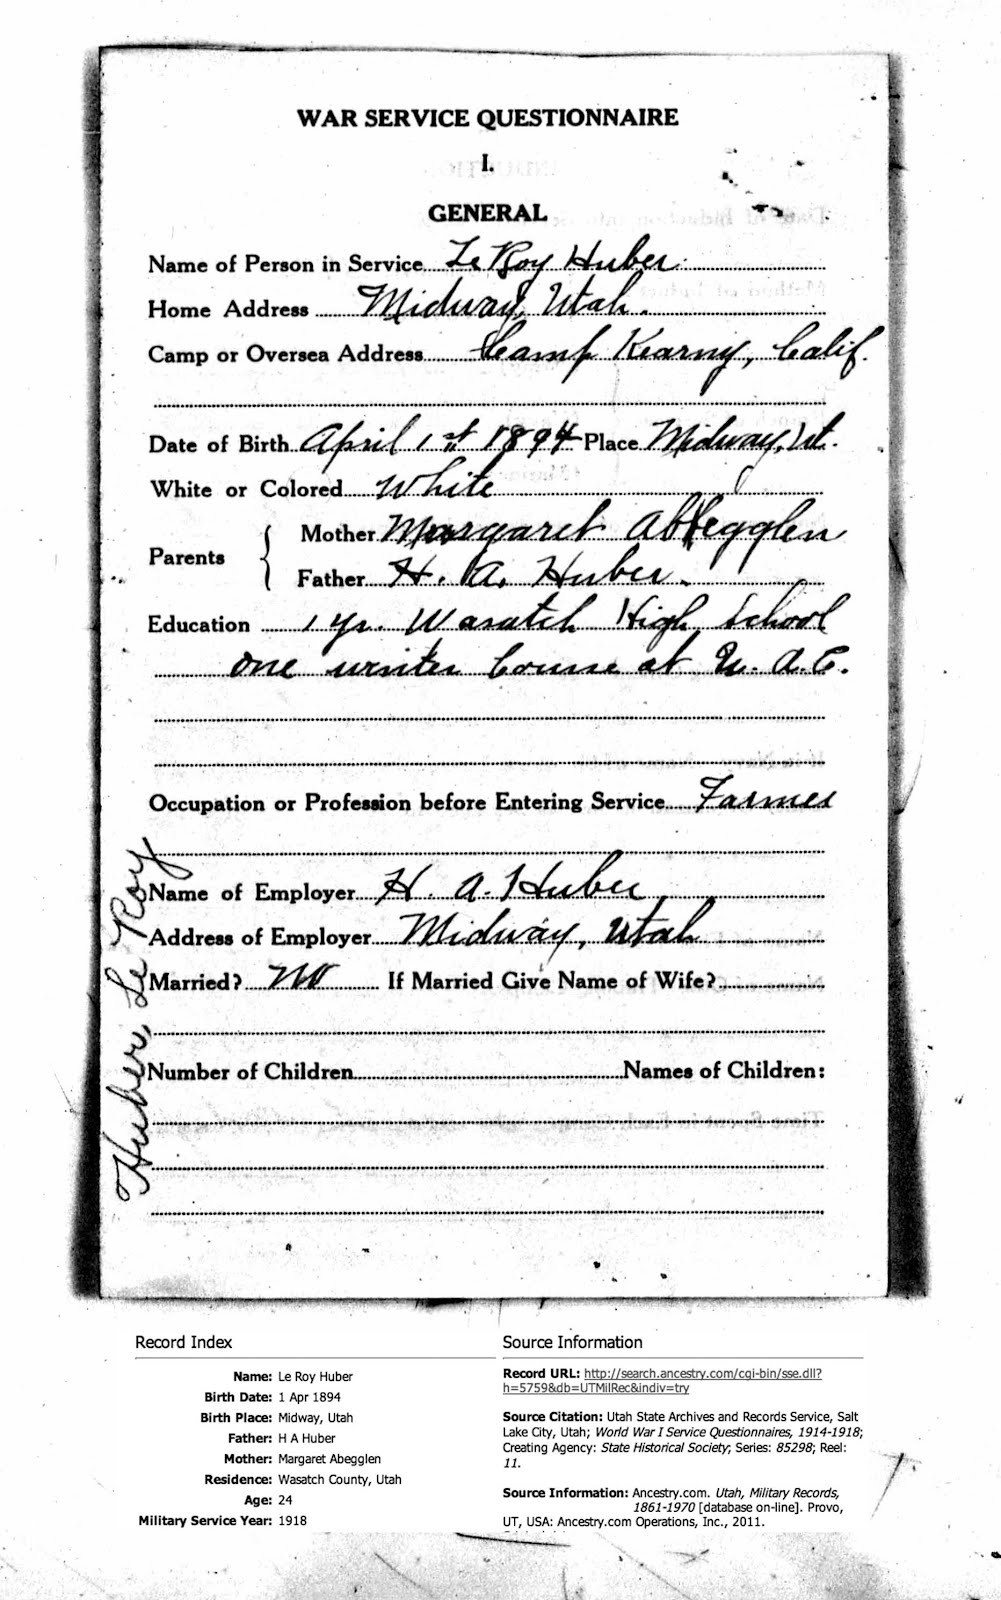 WAR SERVICE QUESTIONNAIRE
I.
GENERAL
Name of Person in Service Le Roy Huber
Home Address Midway, Utah.
Camp or Oversea Address Camp Kearny, Calif.
Date of Birth April 1st 1894 Place Midway, Ut.
White or Colored White
Parents
Mother Margaret Abegglen
Father H. A. Huber.
Education 1 yr. Wasatch High School
one winter Course at U. A. C.
Occupation or Profession before Entering Service Farmer
Name of Employer H. A. Huber
Address of Employer Midway, Utah
Married? No If Married Give Name of Wife?
Number of Children Names of Children:
Huber, Le Roy
Record Index
Name: Le Roy Huber
Birth Date: 1 Apr 1894
Birth Place: Midway, Utah
Father: H A Huber
Mother: Margaret Abegglen
Residence: Wasatch County, Utah
Age: 24
Military Service Year: 1918
Source Information
Record URL: http://search.ancestry.com/cgi-bin/sse.dll?
h=5759&db=UTMilRec&indiv=try
Source Citation: Utah State Archives and Records Service, Salt
Lake City, Utah; World War I Service Questionnaires, 1914-1918;
Creating Agency: State Historical Society; Series: 85298; Reel:
11.
Source Information: Ancestry.com. Utah, Military Records,
1861-1970 [database on-line]. Provo,
UT, USA: Ancestry.com Operations, Inc., 2011.